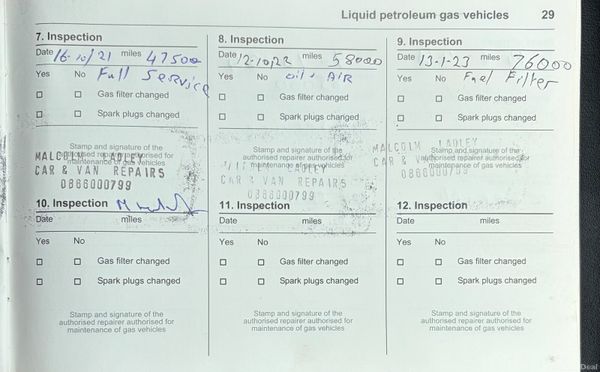 Liquid petroleum gas vehicles 29
7. Inspection
Date 16-10/21 miles 47500
Yes No Full Service
Gas filter changed
Spark plugs changed
Stamp and signature of the
authorised repairer authorised for
maintenance of gas vehicles
MALCOLM LADLEY
CAR & VAN REPAIRS
0866000799
8. Inspection
Date 12-10/22 miles 58000
Yes No oil + AIR
Gas filter changed
Spark plugs changed
Stamp and signature of the
authorised repairer authorised for
maintenance of gas vehicles
LADLEY
CAR & VAN REPAIRS
0866000799
9. Inspection
Date 13-1-23 miles 76000
Yes No Fuel Filter
Gas filter changed
Spark plugs changed
Stamp and signature of the
authorised repairer authorised for
maintenance of gas vehicles
MALCOLM LADLEY
CAR & VA
0866000
10. Inspection
Date miles
Yes No
Gas filter changed
Spark plugs changed
Stamp and signature of the
authorised repairer authorised for
maintenance of gas vehicles
11. Inspection
Date miles
Yes No
Gas filter changed
Spark plugs changed
Stamp and signature of the
authorised repairer authorised for
maintenance of gas vehicles
12. Inspection
Date miles
Yes No
Gas filter changed
Spark plugs changed
Stamp and signature of the
authorised repairer authorised for
maintenance of gas vehicles